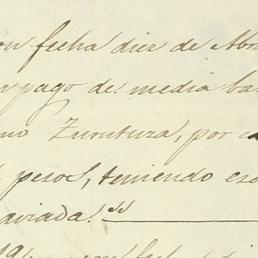 on fecha diez de Abr
pago de media ba
no Zurutuza, por c
pesos, teniendo es
aviada.